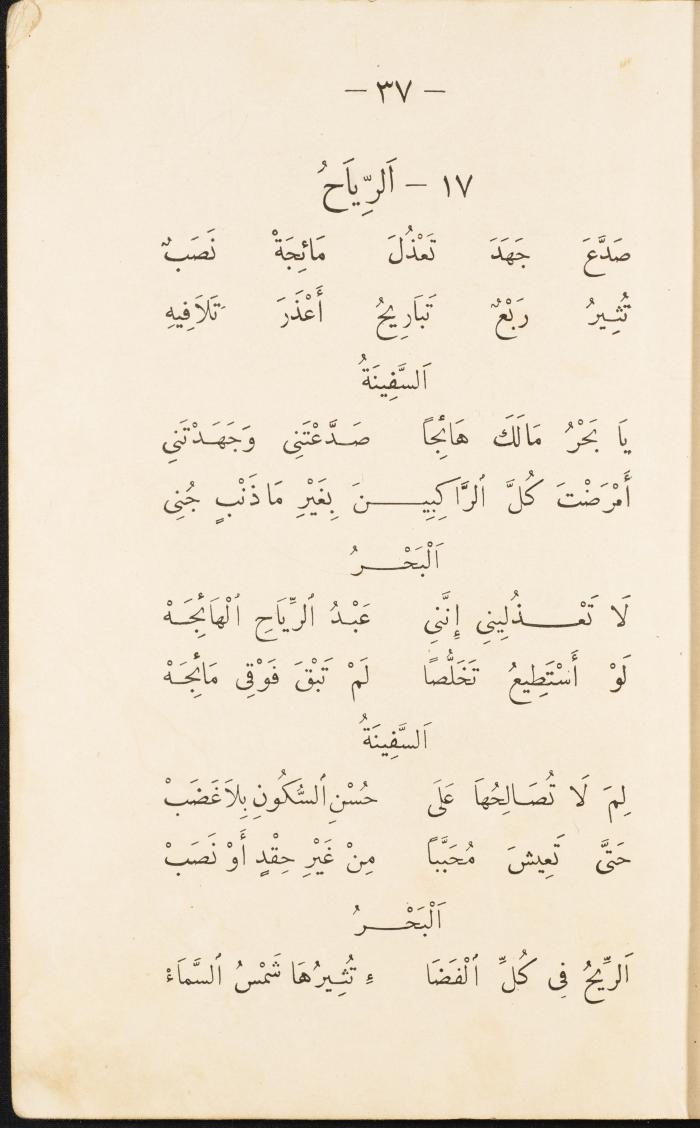 — ٣٧ —
١٧ — اَلرِّيَاحُ
صَدَّعَ جَهَدَ تَعْذُلَ مَائِجَةْ نَصَبٌ
تُثِيرُ رَبْعٌ تَبَارِيحُ أَعْذَرَ تَلَافِيهِ
اَلسَّفِينَةُ
يَا بَحْرُ مَالَكَ هَائِجاً صَدَّعْتَنِي وَجَهَدْتَنِي
أَمْرَضْتَ كُلَّ ٱلرَّاكِبِيـنَ بِغَيْرِ مَا ذَنْبٍ جُنِي
اَلْبَحْـرُ
لَا تَعْـذُلِينِي إِنَّنِي عَبْدُ ٱلرِّيَاحِ ٱلْهَائِجَهْ
لَوْ أَسْتَطِيعُ تَخَلُّصًا لَمْ تَبْقَ فَوْقِي مَائِجَهْ
اَلسَّفِينَةُ
لِمَ لَا تُصَالِحُهَا عَلَى حُسْنِ ٱلسُّكُونِ بِلَا غَضَبْ
حَتَّى تَعِيشَ مُحَبَّباً مِنْ غَيْرِ حِقْدٍ أَوْ نَصَبْ
اَلْبَحْـرُ
اَلرِّيحُ فِي كُلِّ ٱلْفَضَا ءِ تُثِيرُهَا شَمْسُ ٱلسَّمَاءْ